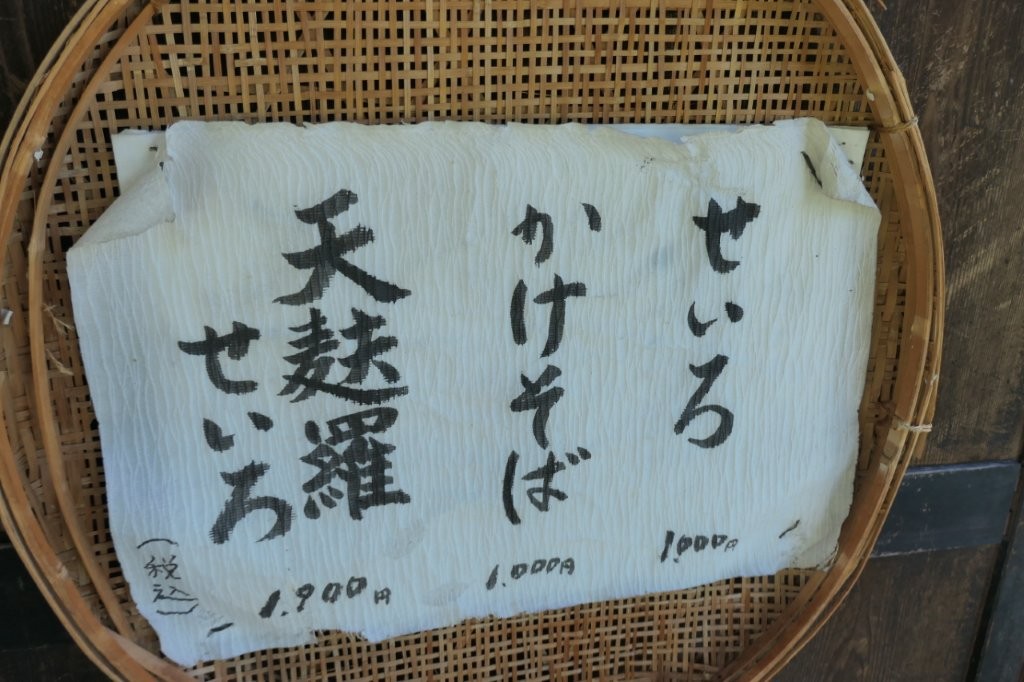 せいろ
1.000円
かけそば
1.000円
天麩羅
せいろ
1.900円
(税込)